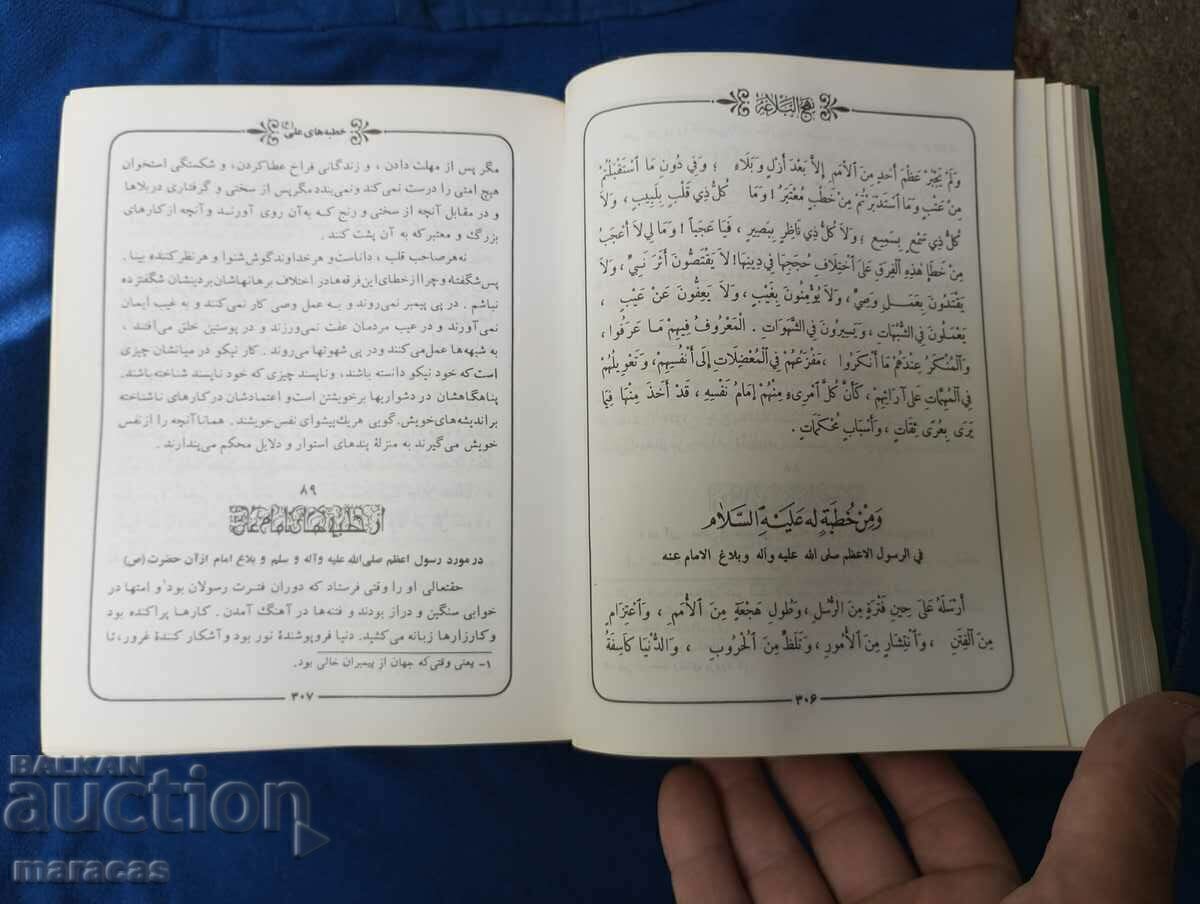 نهج البلاغة
وَلَمْ يَجْبُرْ عَظْمَ أَحَدٍ مِنَ الْأُمَمِ إِلَّا بَعْدَ أَزْلٍ وَبَلَاءٍ ؛ وَفِي دُونِ مَا اسْتَقْبَلْتُمْ
مِنْ عَتْبٍ وَمَا اسْتَدْبَرْتُمْ مِنْ خَطْبٍ مُعْتَبَرٌ ! وَمَا كُلُّ ذِي قَلْبٍ بِلَبِيبٍ ، وَلَا
كُلُّ ذِي سَمْعٍ بِسَمِيعٍ ؛ وَلَا كُلُّ ذِي نَاظِرٍ بِبَصِيرٍ ، فَيَا عَجَباً ! وَمَا لِيَ لَا أَعْجَبُ
مِنْ خَطَإِ هٰذِهِ الْفِرَقِ عَلَى اخْتِلَافِ حُجَجِهَا فِي دِينِهَا ! لَا يَقْتَصُّونَ أَثَرَ نَبِيٍّ ، وَلَا
يَقْتَدُونَ بِعَمَلِ وَصِيٍّ ، وَلَا يُؤْمِنُونَ بِغَيْبٍ ، وَلَا يَعِفُّونَ عَنْ عَيْبٍ ،
يَعْمَلُونَ فِي الشُّبُهَاتِ ، وَيَسِيرُونَ فِي الشَّهَوَاتِ . الْمَعْرُوفُ فِيهِمْ مَا عَرَفُوا ،
وَالْمُنْكَرُ عِنْدَهُمْ مَا أَنْكَرُوا ، مَفْزَعُهُمْ فِي الْمُعْضِلَاتِ إِلَى أَنْفُسِهِمْ ، وَتَعْوِيلُهُمْ
فِي الْمُهِمَّاتِ عَلَى آرَائِهِمْ ، كَأَنَّ كُلَّ امْرِىءٍ مِنْهُمْ إِمَامُ نَفْسِهِ ، قَدْ أَخَذَ مِنْهَا فِيمَا
يَرَى بِعُرًى ثِقَاتٍ ، وَأَسْبَابٍ مُحْكَمَاتٍ .
وَمِنْ خُطْبَةٍ لَهُ عَلَيْهِ السَّلَام
في الرسول الاعظم صلى الله عليه وآله وبلاغ الامام عنه
أَرْسَلَهُ عَلَى حِينِ فَتْرَةٍ مِنَ الرُّسُلِ ، وَطُولِ هَجْعَةٍ مِنَ الْأُمَمِ ، وَاعْتِزَامٍ
مِنَ الْفِتَنِ ، وَانْتِشَارٍ مِنَ الْأُمُورِ ، وَتَلَظٍّ مِنَ الْحُرُوبِ ، وَالدُّنْيَا كَاسِفَةُ
۳۰۶
خطبه های علی (ع)
مگر پس از مهلت دادن ، و زندگانی فراخ عطاکردن، و شکستگی استخوان
هیچ امتی را درست نمی کند و نمی بندد مگر پس از سختی و گرفتاری در بلاها
و در مقابل آنچه از سختی و رنج که به آن روی آورند و آنچه از کارهای
بزرگ و معتبر که به آن پشت کند .
نه هر صاحب قلب ، داناست و هر خداوند گوش شنوا و هر نظر کننده بینا .
پس شگفتا و چرا از خطای این فرقه ها در اختلاف برهانهاشان بر دینشان شگفتزده
نباشم . در پی پیمبر نمی روند و به عمل وصی کار نمی کنند و به غیب ایمان
نمی آورند و در عیب مردمان عفت نمی ورزند و در پوستین خلق می افتند ،
به شبهه ها عمل می کنند و در پی شهوتها می روند . کار نیکو در میانشان چیزی
است که خود نیکو دانسته باشند، و ناپسند چیزی که خود ناپسند شناخته باشند.
پناهگاهشان در دشواریها بر خویشتن است و اعتمادشان در کارهای ناشناخته
بر اندیشه های خویش. گویی هریك پیشوای نفس خویشند. همانا آنچه را از نفس
خویش می گیرند به منزلهٔ پندهای استوار و دلایل محکم می پندارند.
۸۹
از خطبه های امام ع
در مورد رسول اعظم صلی الله علیه وآله و سلم و بلاغ امام از آن حضرت (ص)
حقتعالی او را وقتی فرستاد که دوران فترت رسولان بود¹ و امتها در
خوابی سنگین و دراز بودند و فتنه ها در آهنگ آمدن . کارها پراکنده بود
و کارزارها زبانه می کشید. دنیا فروپوشندهٔ نور بود و آشکار کنندهٔ غرور، تا
۱- یعنی وقتی که جهان از پیمبران خالی بود.
۳۰۷
BALKAN
auction
maracas